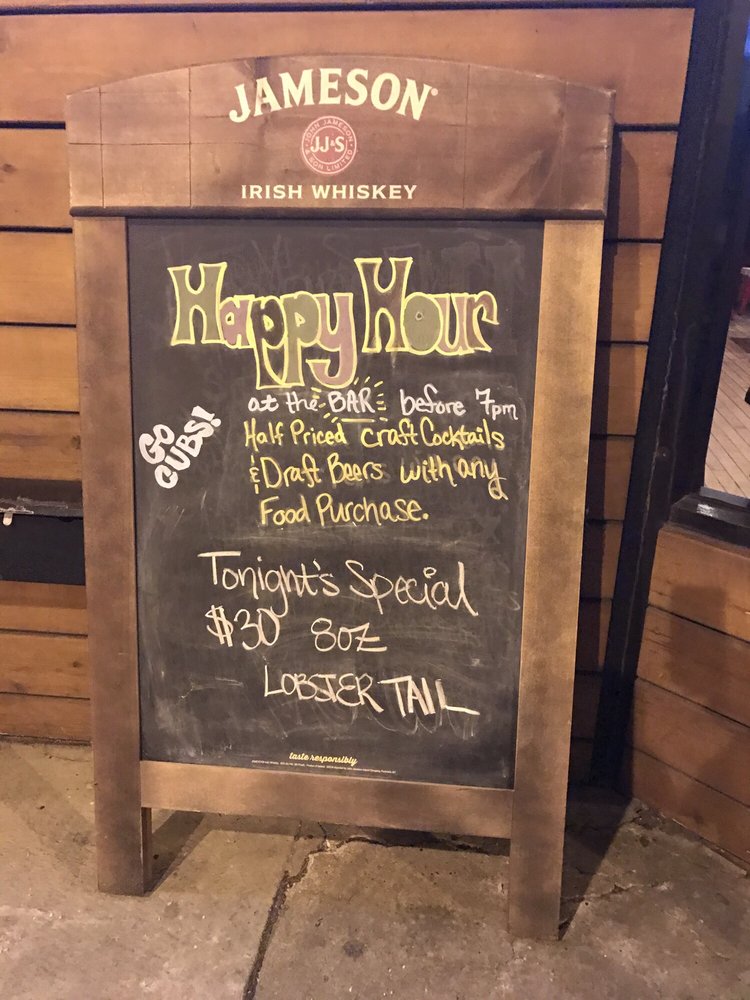 JAMESON®
JOHN JAMESON
JJ&S
& SON LIMITED
IRISH WHISKEY
Happy Hour
at the BAR before 7pm
GO
CUBS!
Half Priced Craft Cocktails
& Draft Beers with any
Food Purchase.
Tonight's Special
$30 8oz
LOBSTER TAIL
taste responsibly